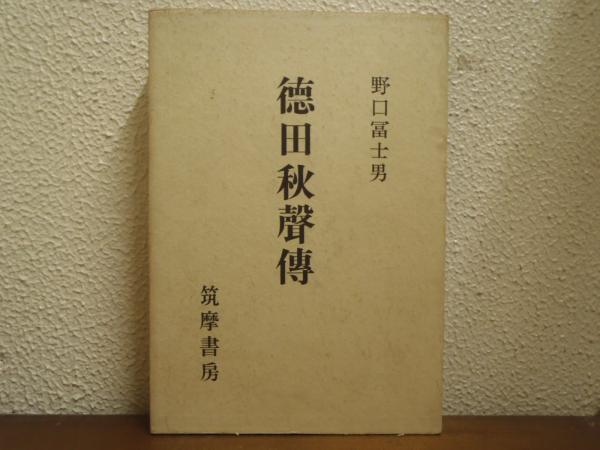 野口冨士男
德田秋聲傳
筑摩書房